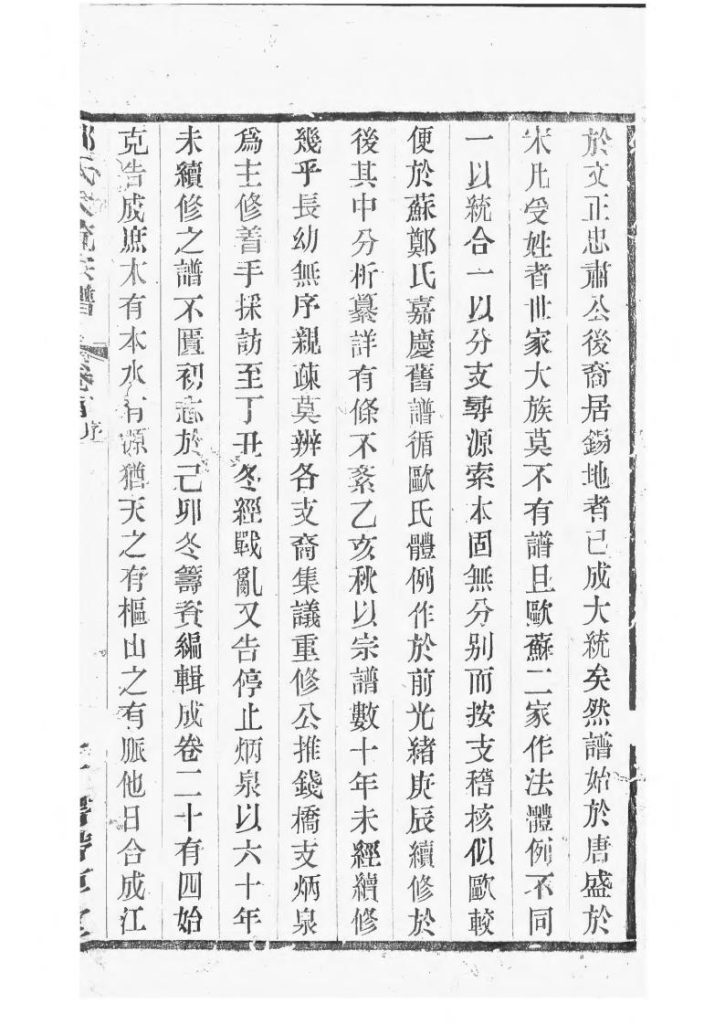 於文正忠肅公後裔居錫地者已成大統矣然譜始於唐盛於
宋凡受姓者世家大族莫不有譜且歐蘇二家作法體例不同
一以統合一以分支尋源索本固無分别而按支稽核似歐較
便於蘇鄭氏嘉慶舊譜循歐氏體例作於前光緒庚辰續修於
後其中分析纂詳有條不紊乙亥秋以宗譜數十年未經續修
幾乎長幼無序親疎莫辨各支裔集議重修公推錢橋支炳泉
爲主修着手採訪至丁丑冬經戰亂又告停止炳泉以六十年
未續修之譜不匱初志於己卯冬籌資編輯成卷二十有四始
克告成庶木有本水有源猶天之有樞山之有脈他日合成江
鄭氏大統宗譜 卷首 序